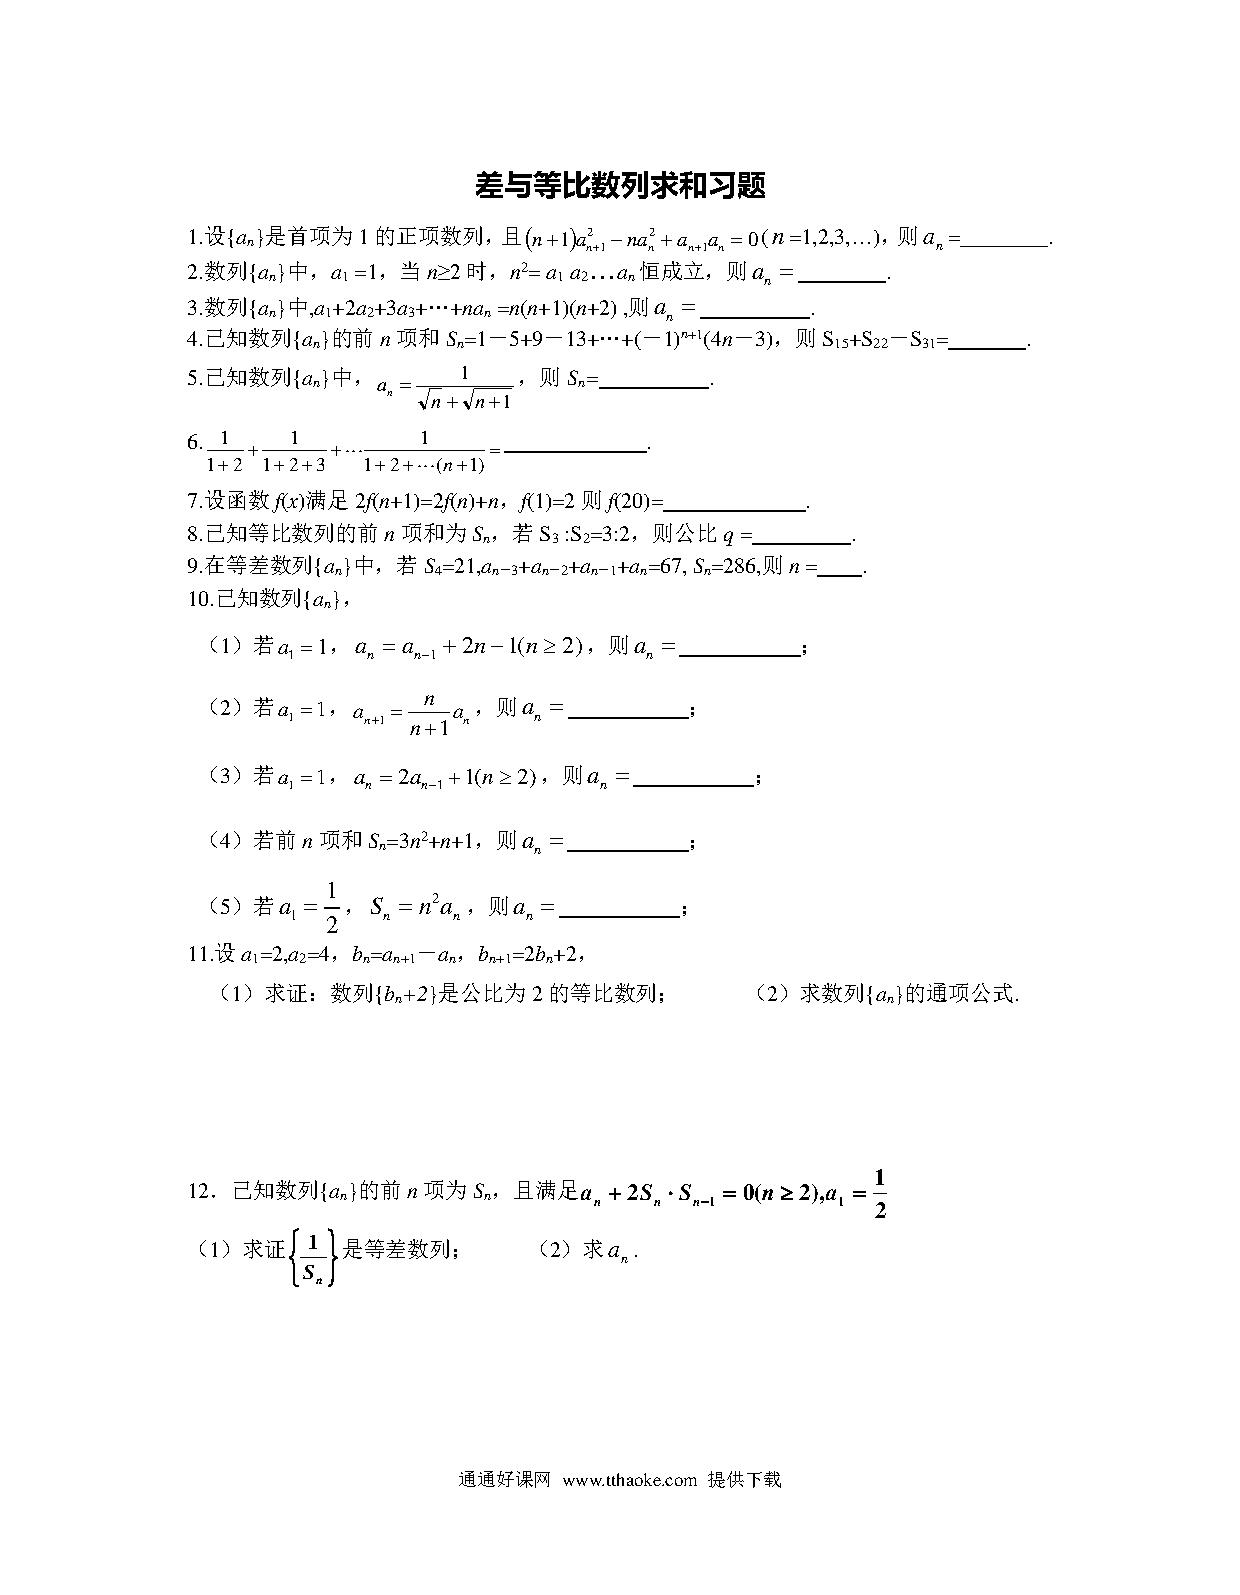 差与等比数列求和习题
1.设{aₙ}是首项为 1 的正项数列，且(n+1)a²ₙ₊₁−na²ₙ+aₙ₊₁aₙ=0( n =1,2,3,…)，则 aₙ =________.
2.数列{aₙ}中，a₁ =1，当 n≥2 时，n²= a₁ a₂…aₙ 恒成立，则 aₙ = ________.
3.数列{aₙ}中,a₁+2a₂+3a₃+⋯+naₙ =n(n+1)(n+2) ,则 aₙ = __________.
4.已知数列{aₙ}的前 n 项和 Sₙ=1－5+9－13+⋯+(－1)ⁿ⁺¹(4n－3)，则 S₁₅+S₂₂－S₃₁=_______.
5.已知数列{aₙ}中，aₙ = 1/(√n+√(n+1))，则 Sₙ=__________.
6. 1/(1+2) + 1/(1+2+3) +⋯ 1/(1+2+⋯(n+1)) = _____________.
7.设函数 f(x)满足 2f(n+1)=2f(n)+n，f(1)=2 则 f(20)=_____________.
8.已知等比数列的前 n 项和为 Sₙ，若 S₃ :S₂=3:2，则公比 q =_________.
9.在等差数列{aₙ}中，若 S₄=21,aₙ₋₃+aₙ₋₂+aₙ₋₁+aₙ=67, Sₙ=286,则 n =____.
10.已知数列{aₙ}，
（1）若 a₁ = 1， aₙ = aₙ₋₁ + 2n − 1(n ≥ 2)，则 aₙ = ___________；
（2）若 a₁ = 1， aₙ₊₁ = n/(n+1) aₙ，则 aₙ = ___________；
（3）若 a₁ = 1， aₙ = 2aₙ₋₁ + 1(n ≥ 2)，则 aₙ = ___________；
（4）若前 n 项和 Sₙ=3n²+n+1，则 aₙ = ___________；
（5）若 a₁ = 1/2， Sₙ = n²aₙ，则 aₙ = ___________；
11.设 a₁=2,a₂=4，bₙ=aₙ₊₁－aₙ，bₙ₊₁=2bₙ+2，
（1）求证：数列{bₙ+2}是公比为 2 的等比数列； （2）求数列{aₙ}的通项公式.
12．已知数列{aₙ}的前 n 项为 Sₙ，且满足 aₙ + 2Sₙ · Sₙ₋₁ = 0(n ≥ 2),a₁ = 1/2
（1）求证{1/Sₙ}是等差数列； （2）求 aₙ .
通通好课网 www.tthaoke.com 提供下载